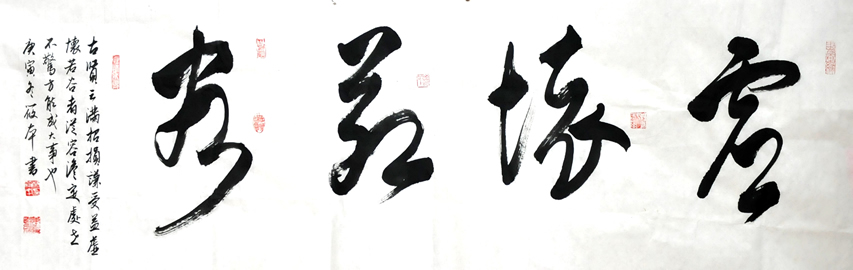 虚懷若谷
古賢云满招損謙受益虚
懷若谷者從容定處之
不驚方能成大事也
庚寅冬書